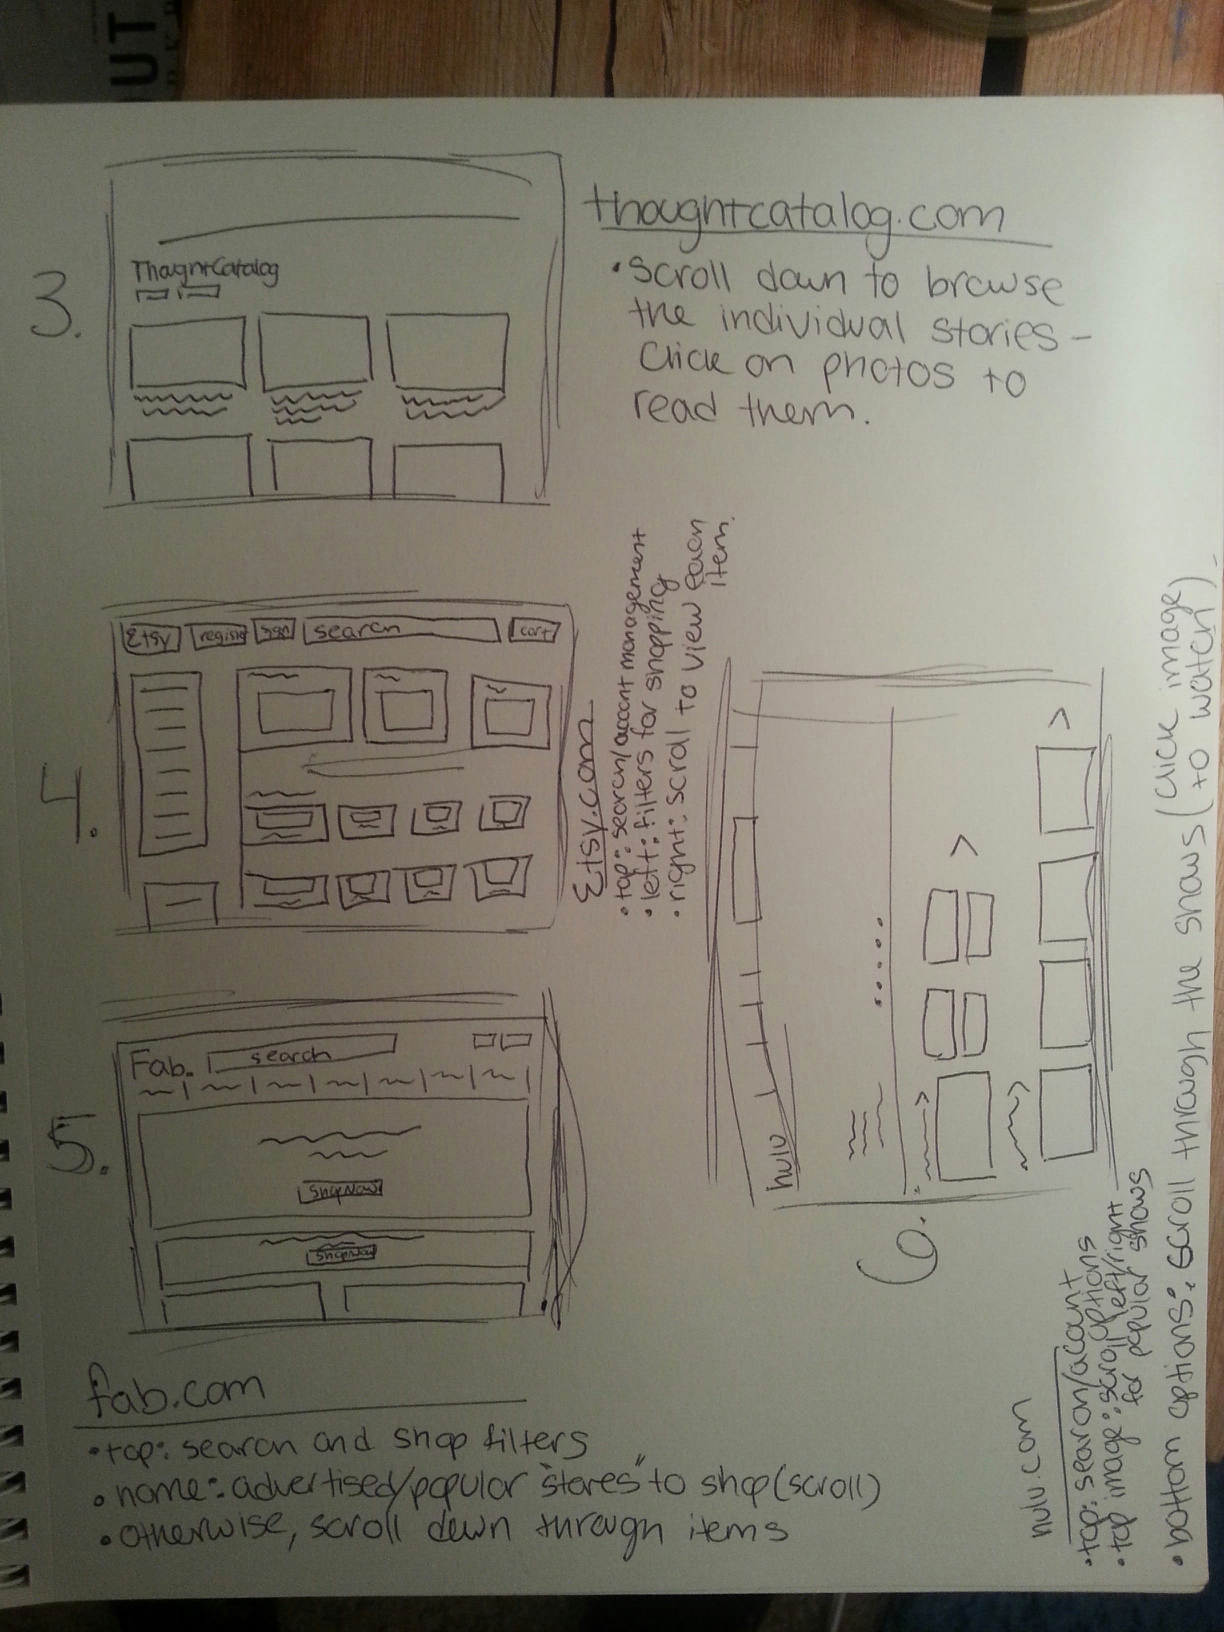 UT
3.
ThoughtCatalog
thoughtcatalog.com
• Scroll down to browse
the individual stories -
Click on photos to
read them.
4.
Etsy
register
sign
search
cart
Etsy.com
• top: search/account management
• left: filters for shopping
• right: scroll to view each
item.
5.
Fab.
search
Shop Now
Shop Now
fab.com
• top: search and shop filters
• home: advertised/popular "stores" to shop (scroll)
• otherwise, scroll down through items
6.
hulu
hulu.com
• top: search/acount
• top image: scroll left/right
options
for popular shows
• bottom options: scroll through the shows (click image
to watch)